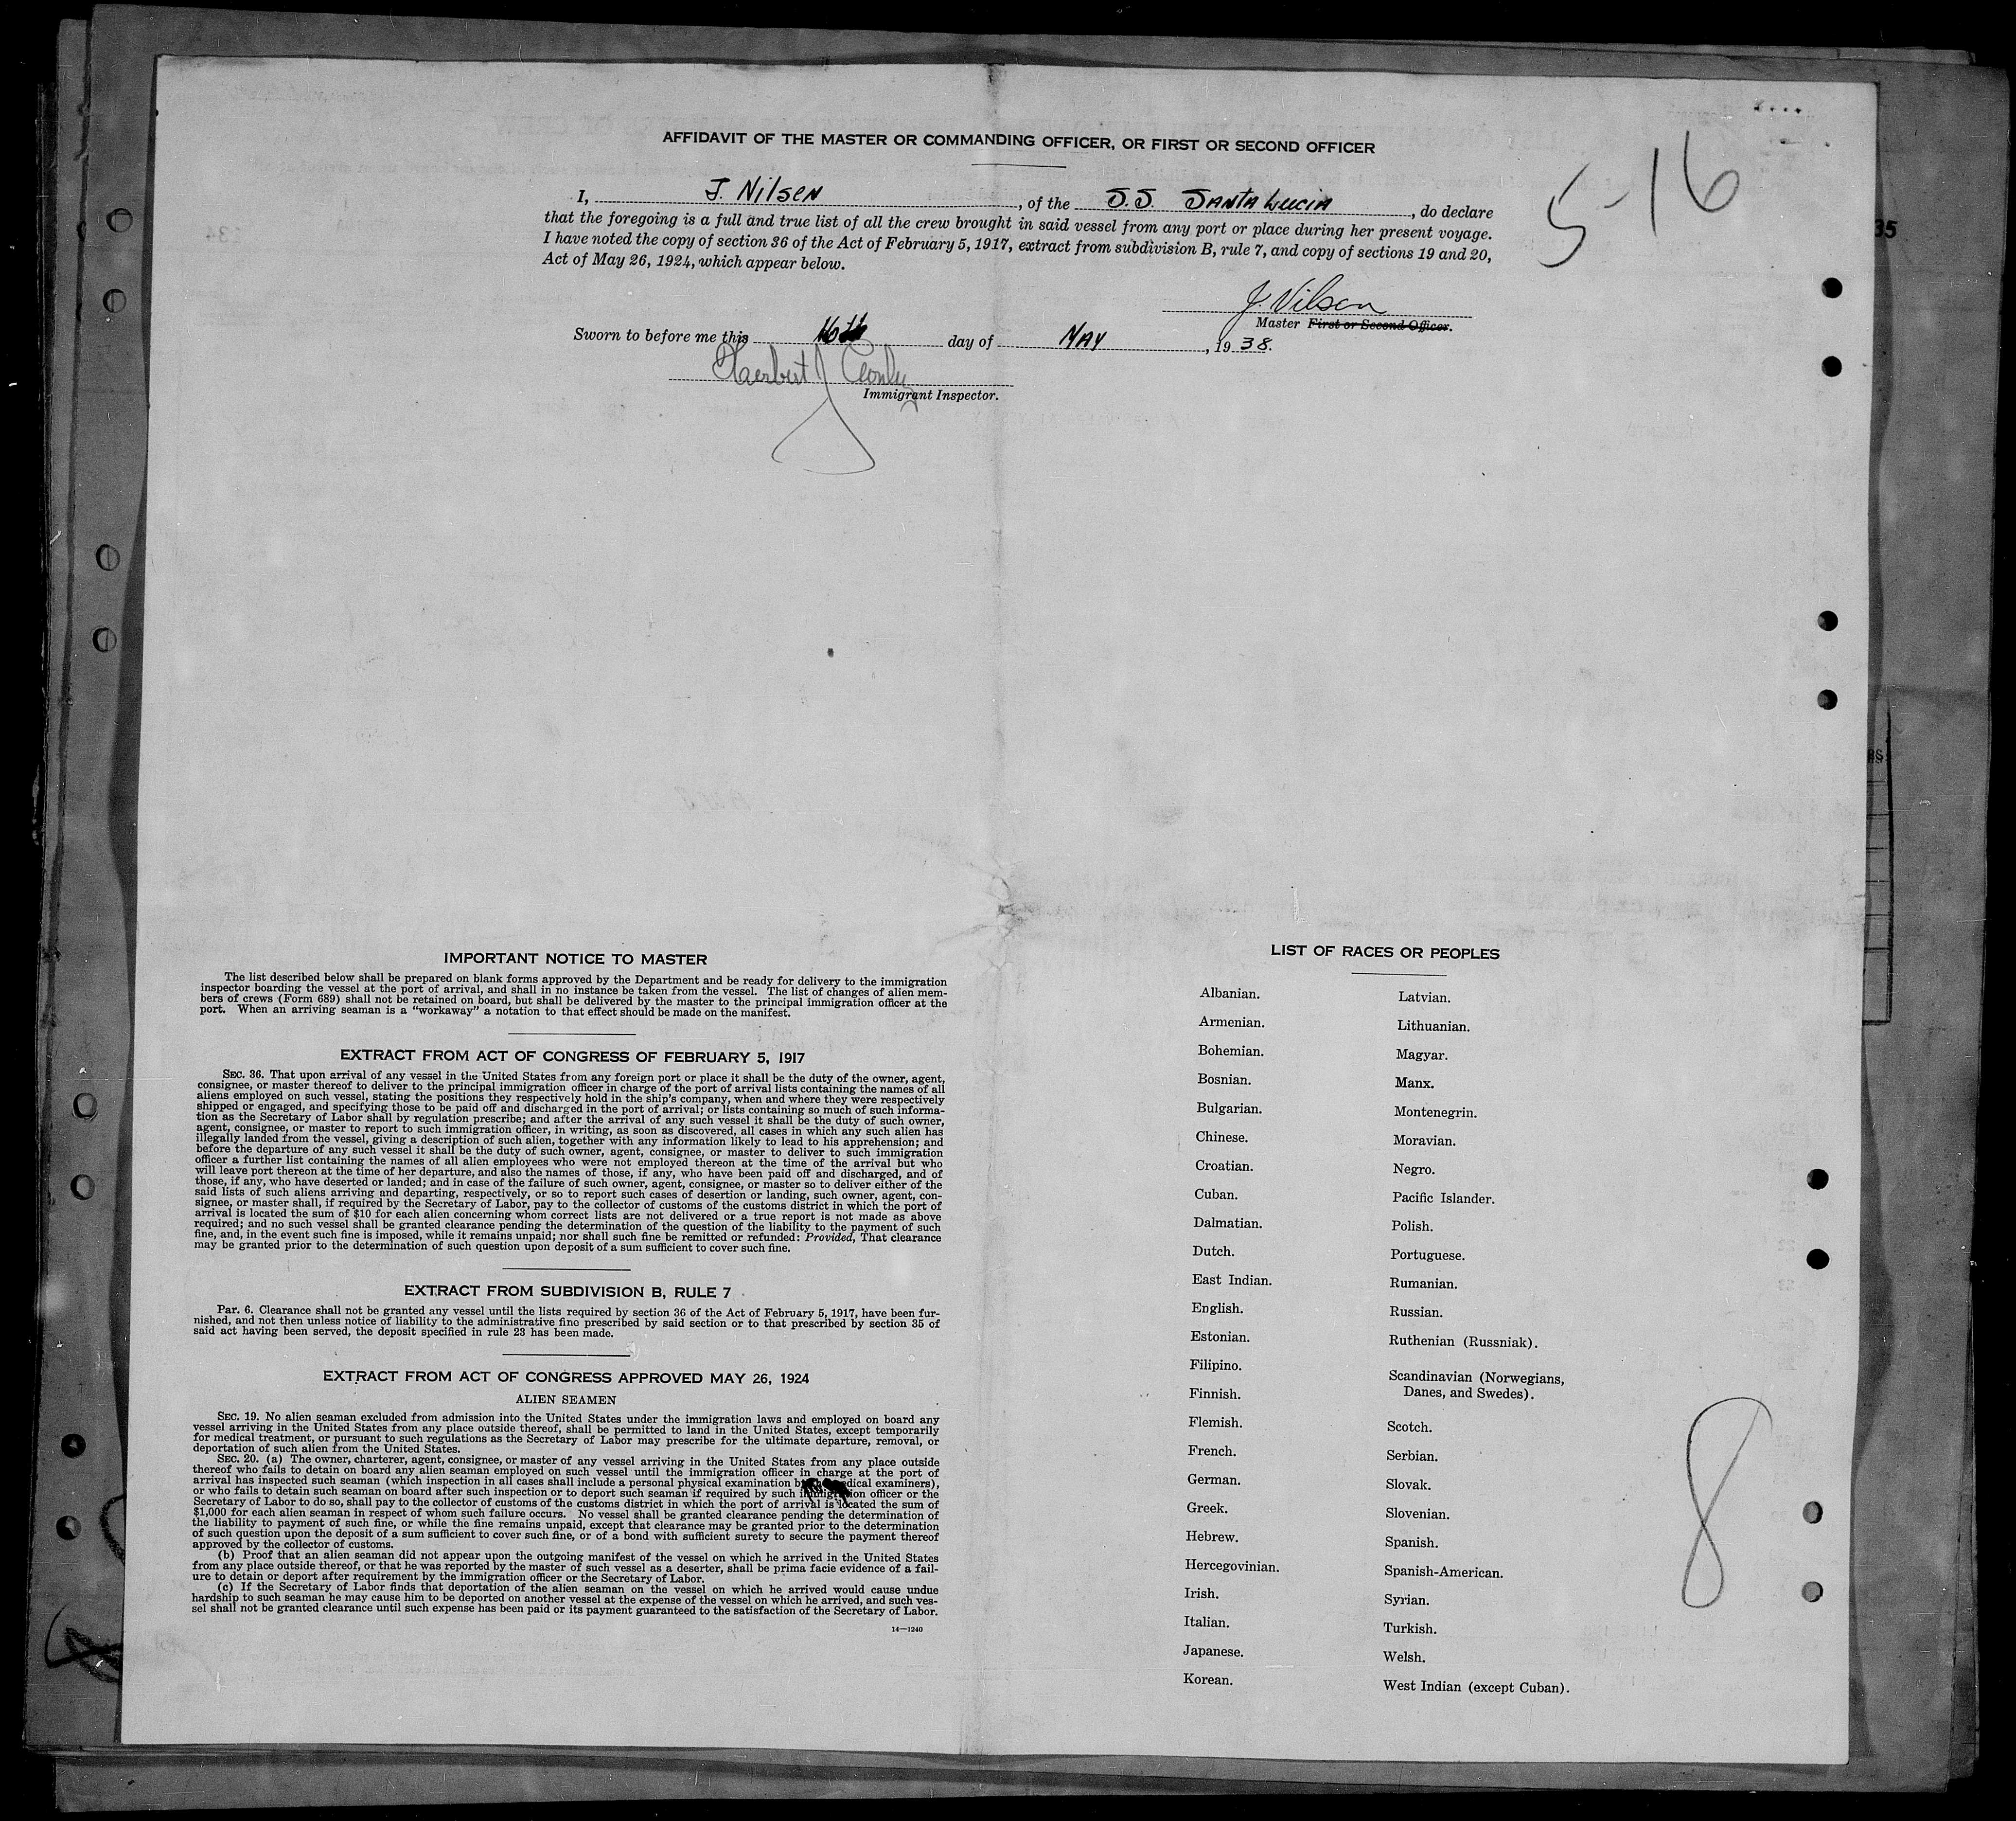 AFFIDAVIT OF THE MASTER OR COMMANDING OFFICER, OR FIRST OR SECOND OFFICER
5-16
I, J. Nilsen, of the S.S. Santa Lucia, do declare
that the foregoing is a full and true list of all the crew brought in said vessel from any port or place during her present voyage.
I have noted the copy of section 36 of the Act of February 5, 1917, extract from subdivision B, rule 7, and copy of sections 19 and 20,
Act of May 26, 1924, which appear below.
J. Nilsen
Master First or Second Officer.
Sworn to before me this 16th day of May, 1938.
Herbert J
Immigrant Inspector.
35
134
IMPORTANT NOTICE TO MASTER
The list described below shall be prepared on blank forms approved by the Department and be ready for delivery to the immigration
inspector boarding the vessel at the port of arrival, and shall in no instance be taken from the vessel. The list of changes of alien mem-
bers of crews (Form 689) shall not be retained on board, but shall be delivered by the master to the principal immigration officer at the
port. When an arriving seaman is a "workaway" a notation to that effect should be made on the manifest.
EXTRACT FROM ACT OF CONGRESS OF FEBRUARY 5, 1917
SEC. 36. That upon arrival of any vessel in the United States from any foreign port or place it shall be the duty of the owner, agent,
consignee, or master thereof to deliver to the principal immigration officer in charge of the port of arrival lists containing the names of all
aliens employed on such vessel, stating the positions they respectively hold in the ship's company, when and where they were respectively
shipped or engaged, and specifying those to be paid off and discharged in the port of arrival; or lists containing so much of such informa-
tion as the Secretary of Labor shall by regulation prescribe; and after the arrival of any such vessel it shall be the duty of such owner,
agent, consignee, or master to report to such immigration officer, in writing, as soon as discovered, all cases in which any such alien has
illegally landed from the vessel, giving a description of such alien, together with any information likely to lead to his apprehension; and
before the departure of any such vessel it shall be the duty of such owner, agent, consignee, or master to deliver to such immigration
officer a further list containing the names of all alien employees who were not employed thereon at the time of the arrival but who
will leave port thereon at the time of her departure, and also the names of those, if any, who have been paid off and discharged, and of
those, if any, who have deserted or landed; and in case of the failure of such owner, agent, consignee, or master so to deliver either of the
said lists of such aliens arriving and departing, respectively, or so to report such cases of desertion or landing, such owner, agent, con-
signee, or master shall, if required by the Secretary of Labor, pay to the collector of customs of the customs district in which the port of
arrival is located the sum of $10 for each alien concerning whom correct lists are not delivered or a true report is not made as above
required; and no such vessel shall be granted clearance pending the determination of the question of the liability to the payment of such
fine, and, in the event such fine is imposed, while it remains unpaid; nor shall such fine be remitted or refunded: Provided, That clearance
may be granted prior to the determination of such question upon deposit of a sum sufficient to cover such fine.
EXTRACT FROM SUBDIVISION B, RULE 7
Par. 6. Clearance shall not be granted any vessel until the lists required by section 36 of the Act of February 5, 1917, have been fur-
nished, and not then unless notice of liability to the administrative fine prescribed by said section or to that prescribed by section 35 of
said act having been served, the deposit specified in rule 23 has been made.
EXTRACT FROM ACT OF CONGRESS APPROVED MAY 26, 1924
ALIEN SEAMEN
SEC. 19. No alien seaman excluded from admission into the United States under the immigration laws and employed on board any
vessel arriving in the United States from any place outside thereof, shall be permitted to land in the United States, except temporarily
for medical treatment, or pursuant to such regulations as the Secretary of Labor may prescribe for the ultimate departure, removal, or
deportation of such alien from the United States.
SEC. 20. (a) The owner, charterer, agent, consignee, or master of any vessel arriving in the United States from any place outside
thereof who fails to detain on board any alien seaman employed on such vessel until the immigration officer in charge at the port of
arrival has inspected such seaman (which inspection in all cases shall include a personal physical examination by the medical examiners),
or who fails to detain such seaman on board after such inspection or to deport such seaman if required by such immigration officer or the
Secretary of Labor to do so, shall pay to the collector of customs of the customs district in which the port of arrival is located the sum of
$1,000 for each alien seaman in respect of whom such failure occurs. No vessel shall be granted clearance pending the determination of
the liability to payment of such fine, or while the fine remains unpaid, except that clearance may be granted prior to the determination
of such question upon the deposit of a sum sufficient to cover such fine, or of a bond with sufficient surety to secure the payment thereof
approved by the collector of customs.
(b) Proof that an alien seaman did not appear upon the outgoing manifest of the vessel on which he arrived in the United States
from any place outside thereof, or that he was reported by the master of such vessel as a deserter, shall be prima facie evidence of a fail-
ure to detain or deport after requirement by the immigration officer or the Secretary of Labor.
(c) If the Secretary of Labor finds that deportation of the alien seaman on the vessel on which he arrived would cause undue
hardship to such seaman he may cause him to be deported on another vessel at the expense of the vessel on which he arrived, and such ves-
sel shall not be granted clearance until such expense has been paid or its payment guaranteed to the satisfaction of the Secretary of Labor.
14—1240
LIST OF RACES OR PEOPLES
Albanian.
Armenian.
Bohemian.
Bosnian.
Bulgarian.
Chinese.
Croatian.
Cuban.
Dalmatian.
Dutch.
East Indian.
English.
Estonian.
Filipino.
Finnish.
Flemish.
French.
German.
Greek.
Hebrew.
Hercegovinian.
Irish.
Italian.
Japanese.
Korean.
Latvian.
Lithuanian.
Magyar.
Manx.
Montenegrin.
Moravian.
Negro.
Pacific Islander.
Polish.
Portuguese.
Rumanian.
Russian.
Ruthenian (Russniak).
Scandinavian (Norwegians,
Danes, and Swedes).
Scotch.
Serbian.
Slovak.
Slovenian.
Spanish.
Spanish-American.
Syrian.
Turkish.
Welsh.
West Indian (except Cuban).
8